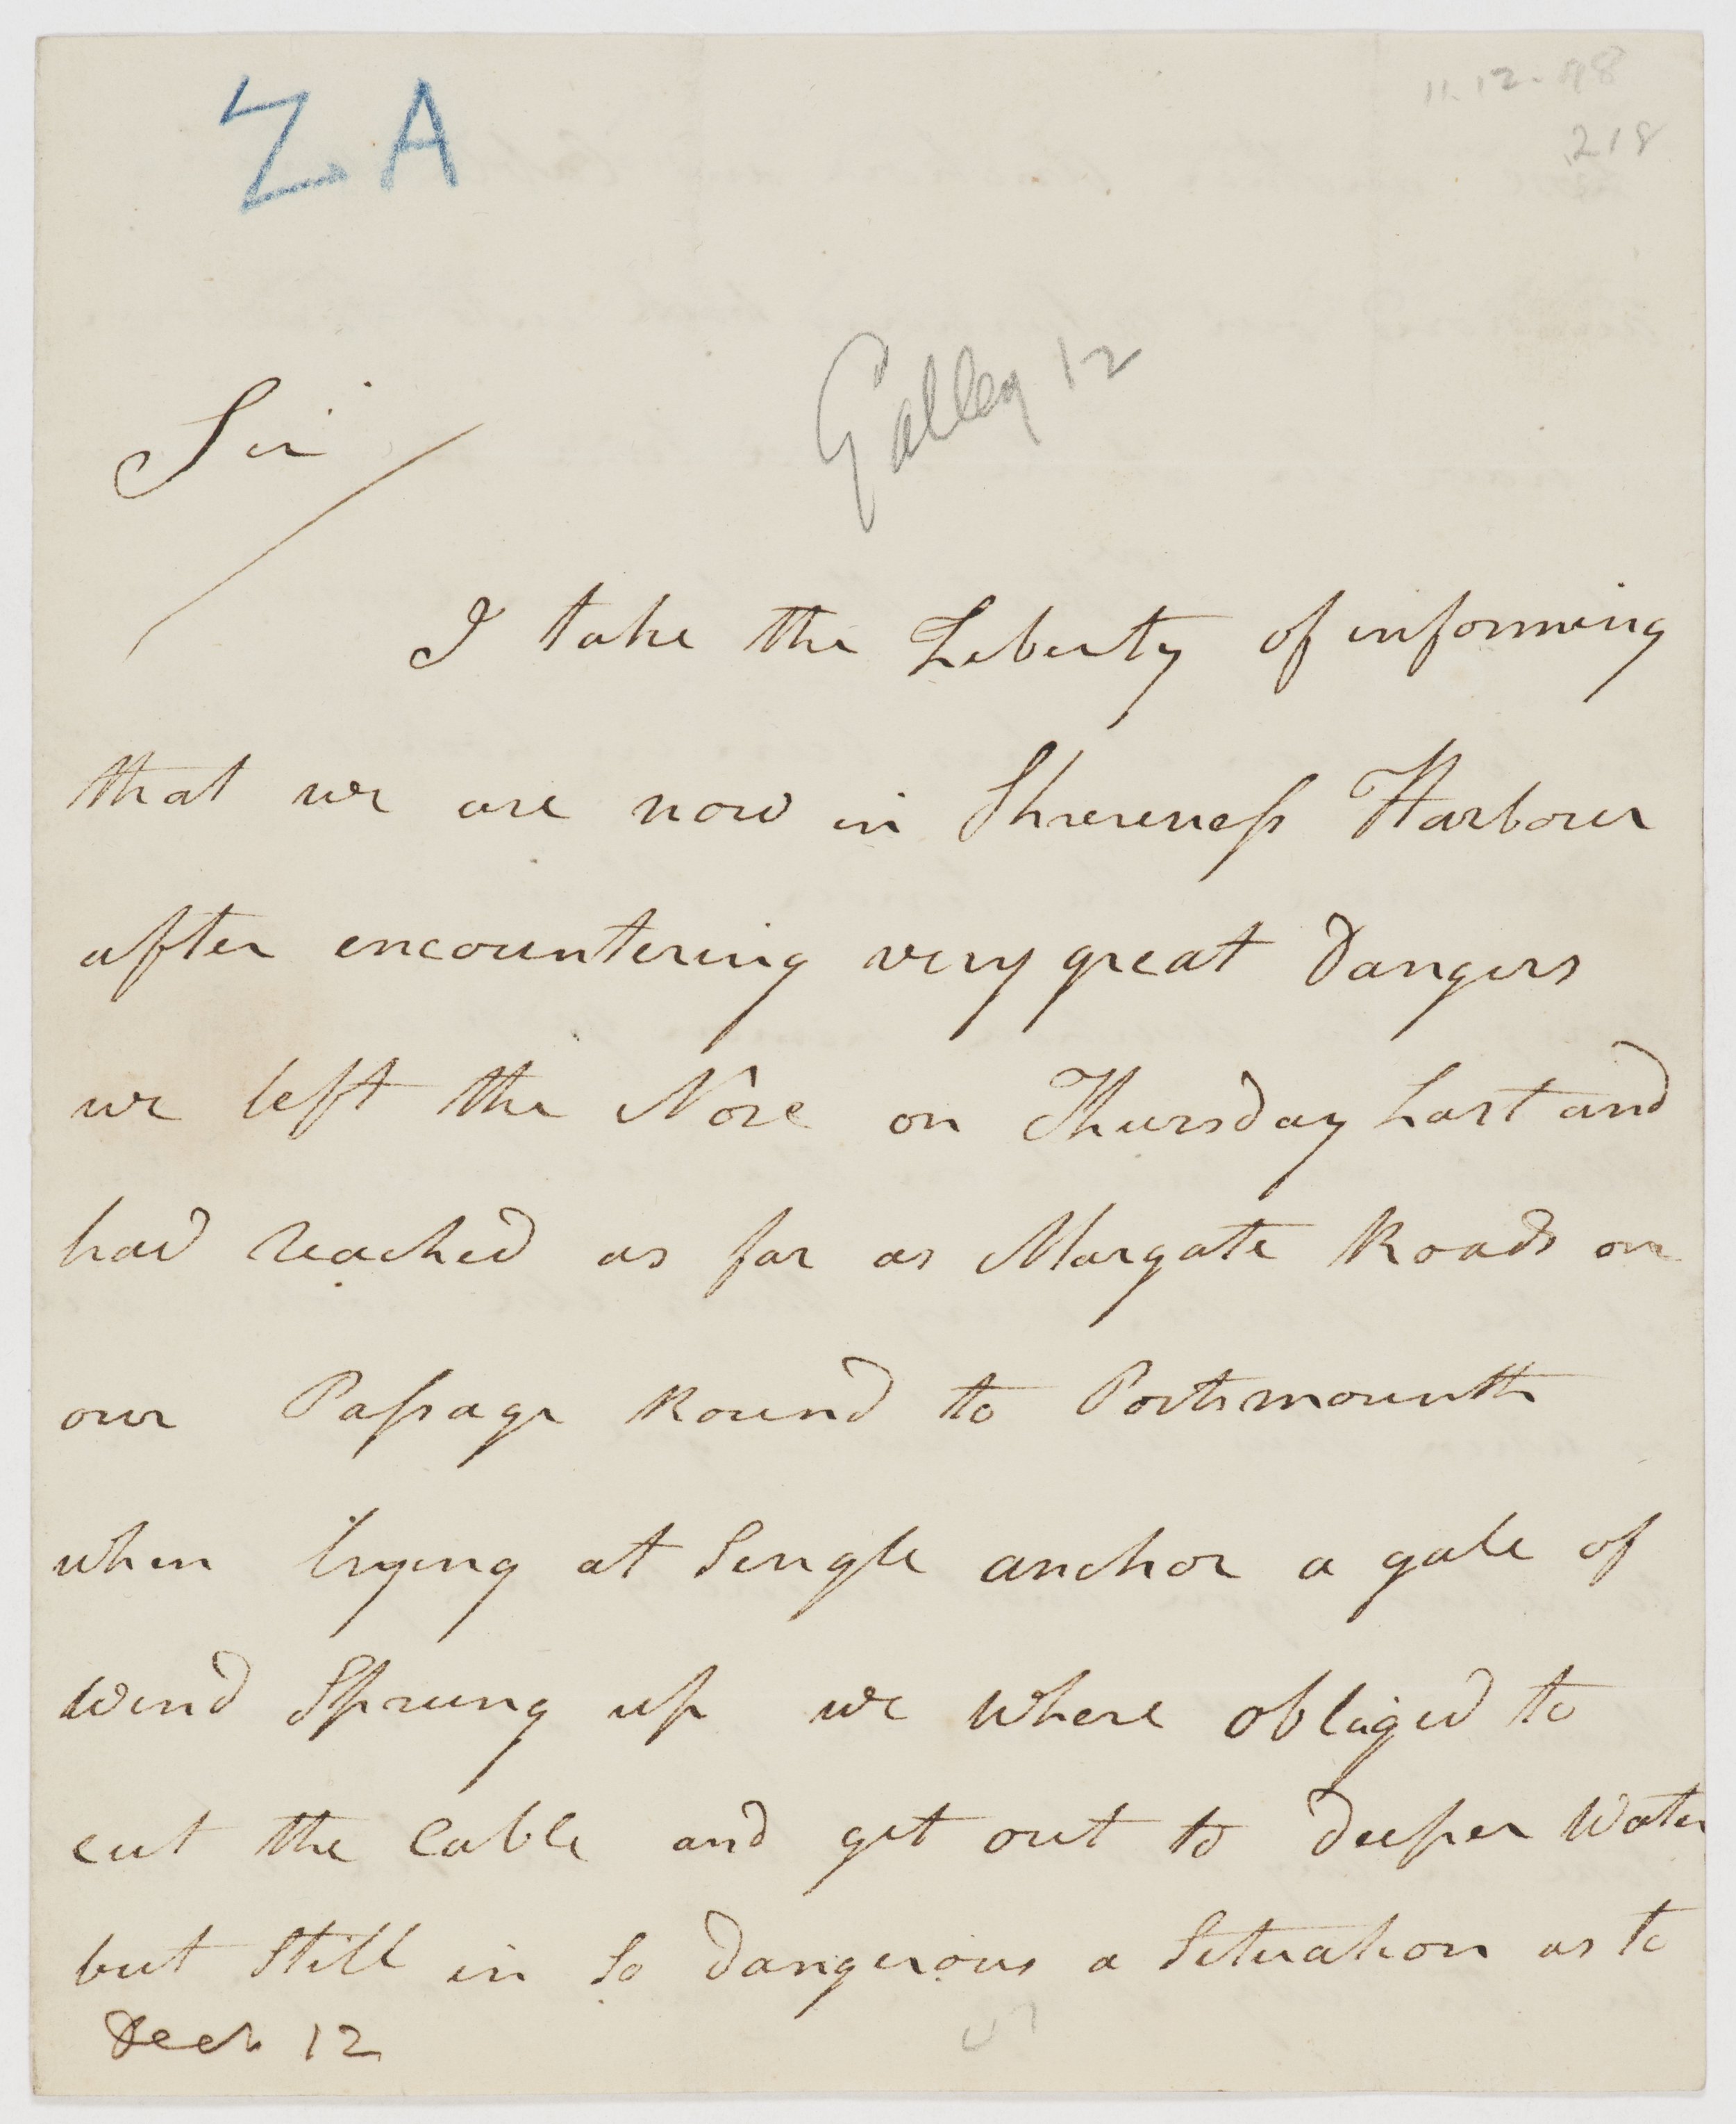 ZA
11.12.98
218
Galley 12
Sir
I take the Liberty of informing
that we are now in Sheerness Harbour
after encountering very great Dangers
we left the Nore on Thursday Last and
had reached as far as Margate Roads on
our Passage Round to Portsmouth
when lying at Single anchor a gale of
Wind Sprung up we Where obliged to
cut the Cable and get out to deeper Water
but Still in So dangerous a Situation as to
Decr 12